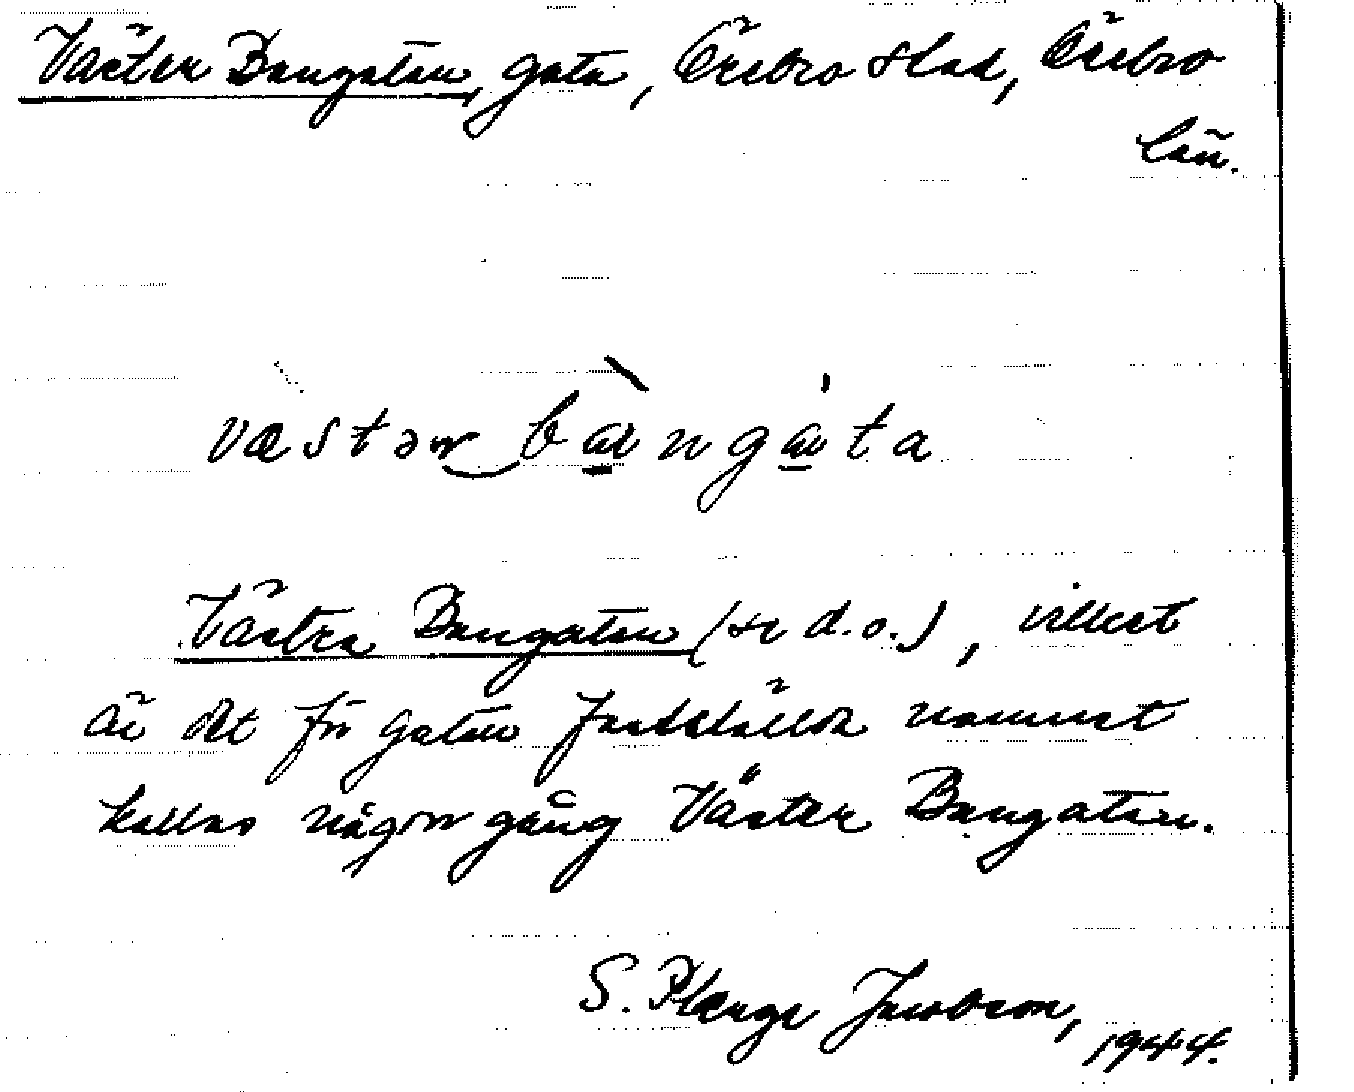 Väster Bangatan, gata, Örebro stad, Örebro
län.
væstər bàngáta
Västra Bangatan (se d.o.), vilket
är det för gatan fastställda namnet
kallas någon gång Väster Bangatan.
S. Plænge Jacobson, 1944.